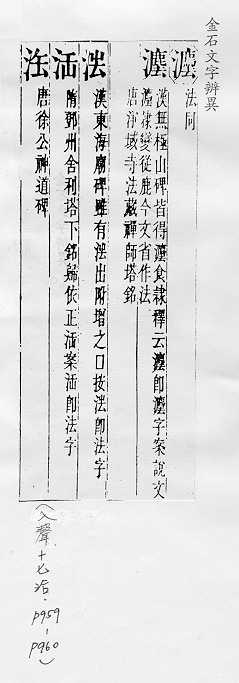 金石文字辨異
(灋)法同
灋 漢無極山碑皆得灋食隸釋云灋即灋字案說文
灋隸變從鹿今文省作法
唐淨域寺法藏禪師塔銘
漢東海廟碑雖有法出附增之口按浍即法字
隋鄧州舍利塔下銘歸依正活案活即法字
唐徐公神道碑
(入聲十七洽.p959-p960)